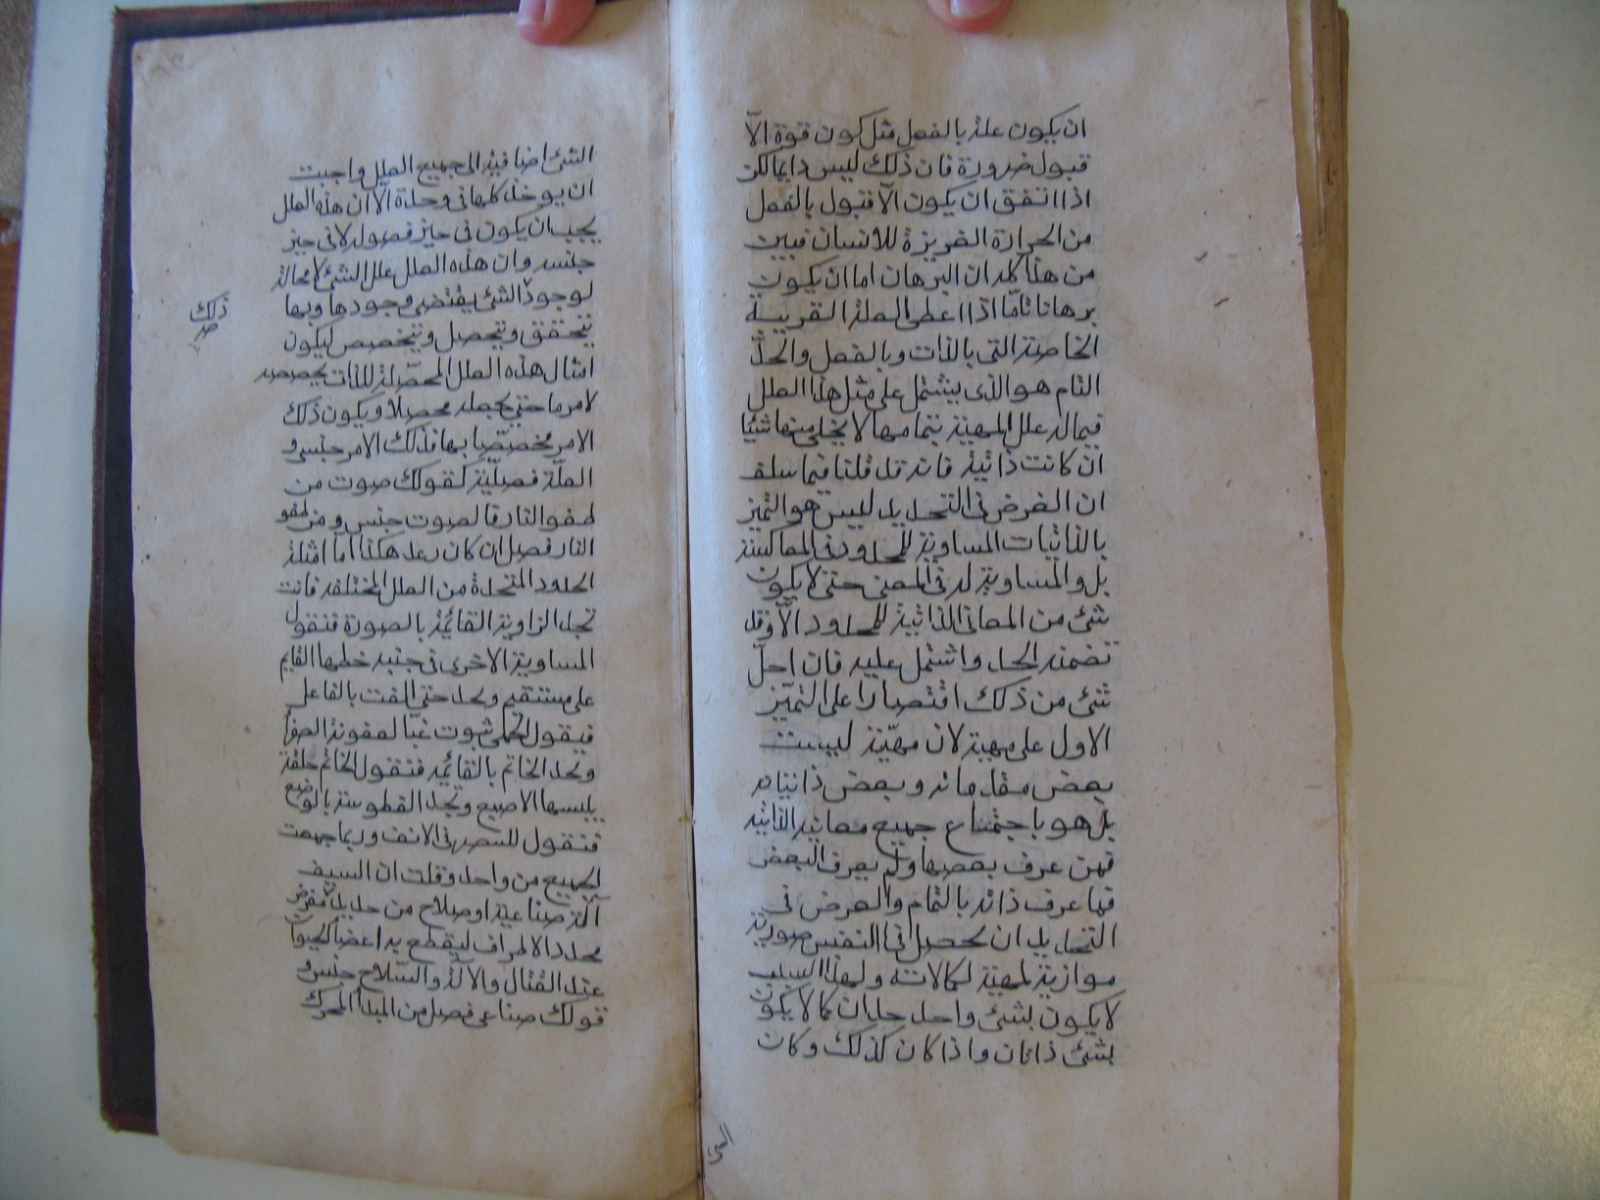 ان يكون علة بالفعل مثل كون قوة الا
قبول ضرورة فان ذلك ليس دايما لكن
اذا اتفق ان يكون الا قبول بالفعل
من الحرارة الغريزة للانسان فبين
من هذا كله ان البرهان اما ان يكون
برهانا تامّا اذا اعطى العلة القريبة
الخاصة التى بالذات وبالفعل والحدّ
التام هو الذى يشتمل على مثل هذا العلل
فيما له علل المهية بتمامها لا يخلى منها شيئا
ان كانت ذاتية فانه قد قلنا فيما سلف
ان الغرض فى التحديد ليس هو التميز
بالذاتيات المساوية للمحدود فى المعاكسة
بل والمساوية له فى المعنى حتى لا يكون
شئ من المعانى الذاتية للمحدود الّا وقد
تضمنه الحد واشتمل عليه فان اخلّ
شئ من ذلك اقتصارا على التميّز
الاول على مهية لان مهيّة ليست
بعض مقدماته وبعض ذاتياته
بل هو باجتماع جميع معانيه الذاتية
فمن عرف بعضها ولم يعرف البعض
فما عرف ذاته بالتمام والغرض فى
التحديد ان تحصل فى النفس صورة
موازية لمهية لكمالاته ولهذا السبب
لا يكون بشئ واحد حدان كما لا يكون
بشئ ذاتان واذا كان كذلك وكان
الشئ
الشئ اضافية الى جميع العلل واجبت
ان يوخذ كلها فى وحدة الّا ان هذه العلل
يجب ان يكون فى حيز فصوله لا فى حيز
جنسه وان هذه العلل علل الشئ لا محالة
لوجود الشئ يقتضى وجودها وبها
ذلك صح
يتحقق ويتحصل ويتخصص ليكون
امثال هذه العلل المحصّلة للذات تخصصه
لامر ما حتى تجعله محصلا ويكون ذلك
الامر مخصّصا بها فذلك الامر جنس و
العلّة فصليّة كقولك صوت من
طفو النار فالصوت جنس ومن طفو
النار فصل ان كان رعد هكذا اما امثلة
الحدود المتخذة من العلل المختلفة فانت
تجد الزاوية القائمة بالصورة فنقول
المساوية الاخرى فى جنبه خطها القايم
على مستقيم وتحد حتى الغت بالفاعل
فيقول الحمى ثبوت غبّا لعفونة الصفرا
وتحد الخاتم بالقائمه فتقول الخاتم حلقة
يلبسها الاصبع وتحد الفطوسة بالوضع
فنقول للتقعر فى الانف وربما جمعت
الجميع من واحد وقلت ان السيف
آلة صناعية او صلاح من حديد مفرض
محدد الاطراف ليقطع به اعضا الحيوان
عند القتال والالة والسّلاح جنس و
قولك صناعى فصل من المبدا المحرك